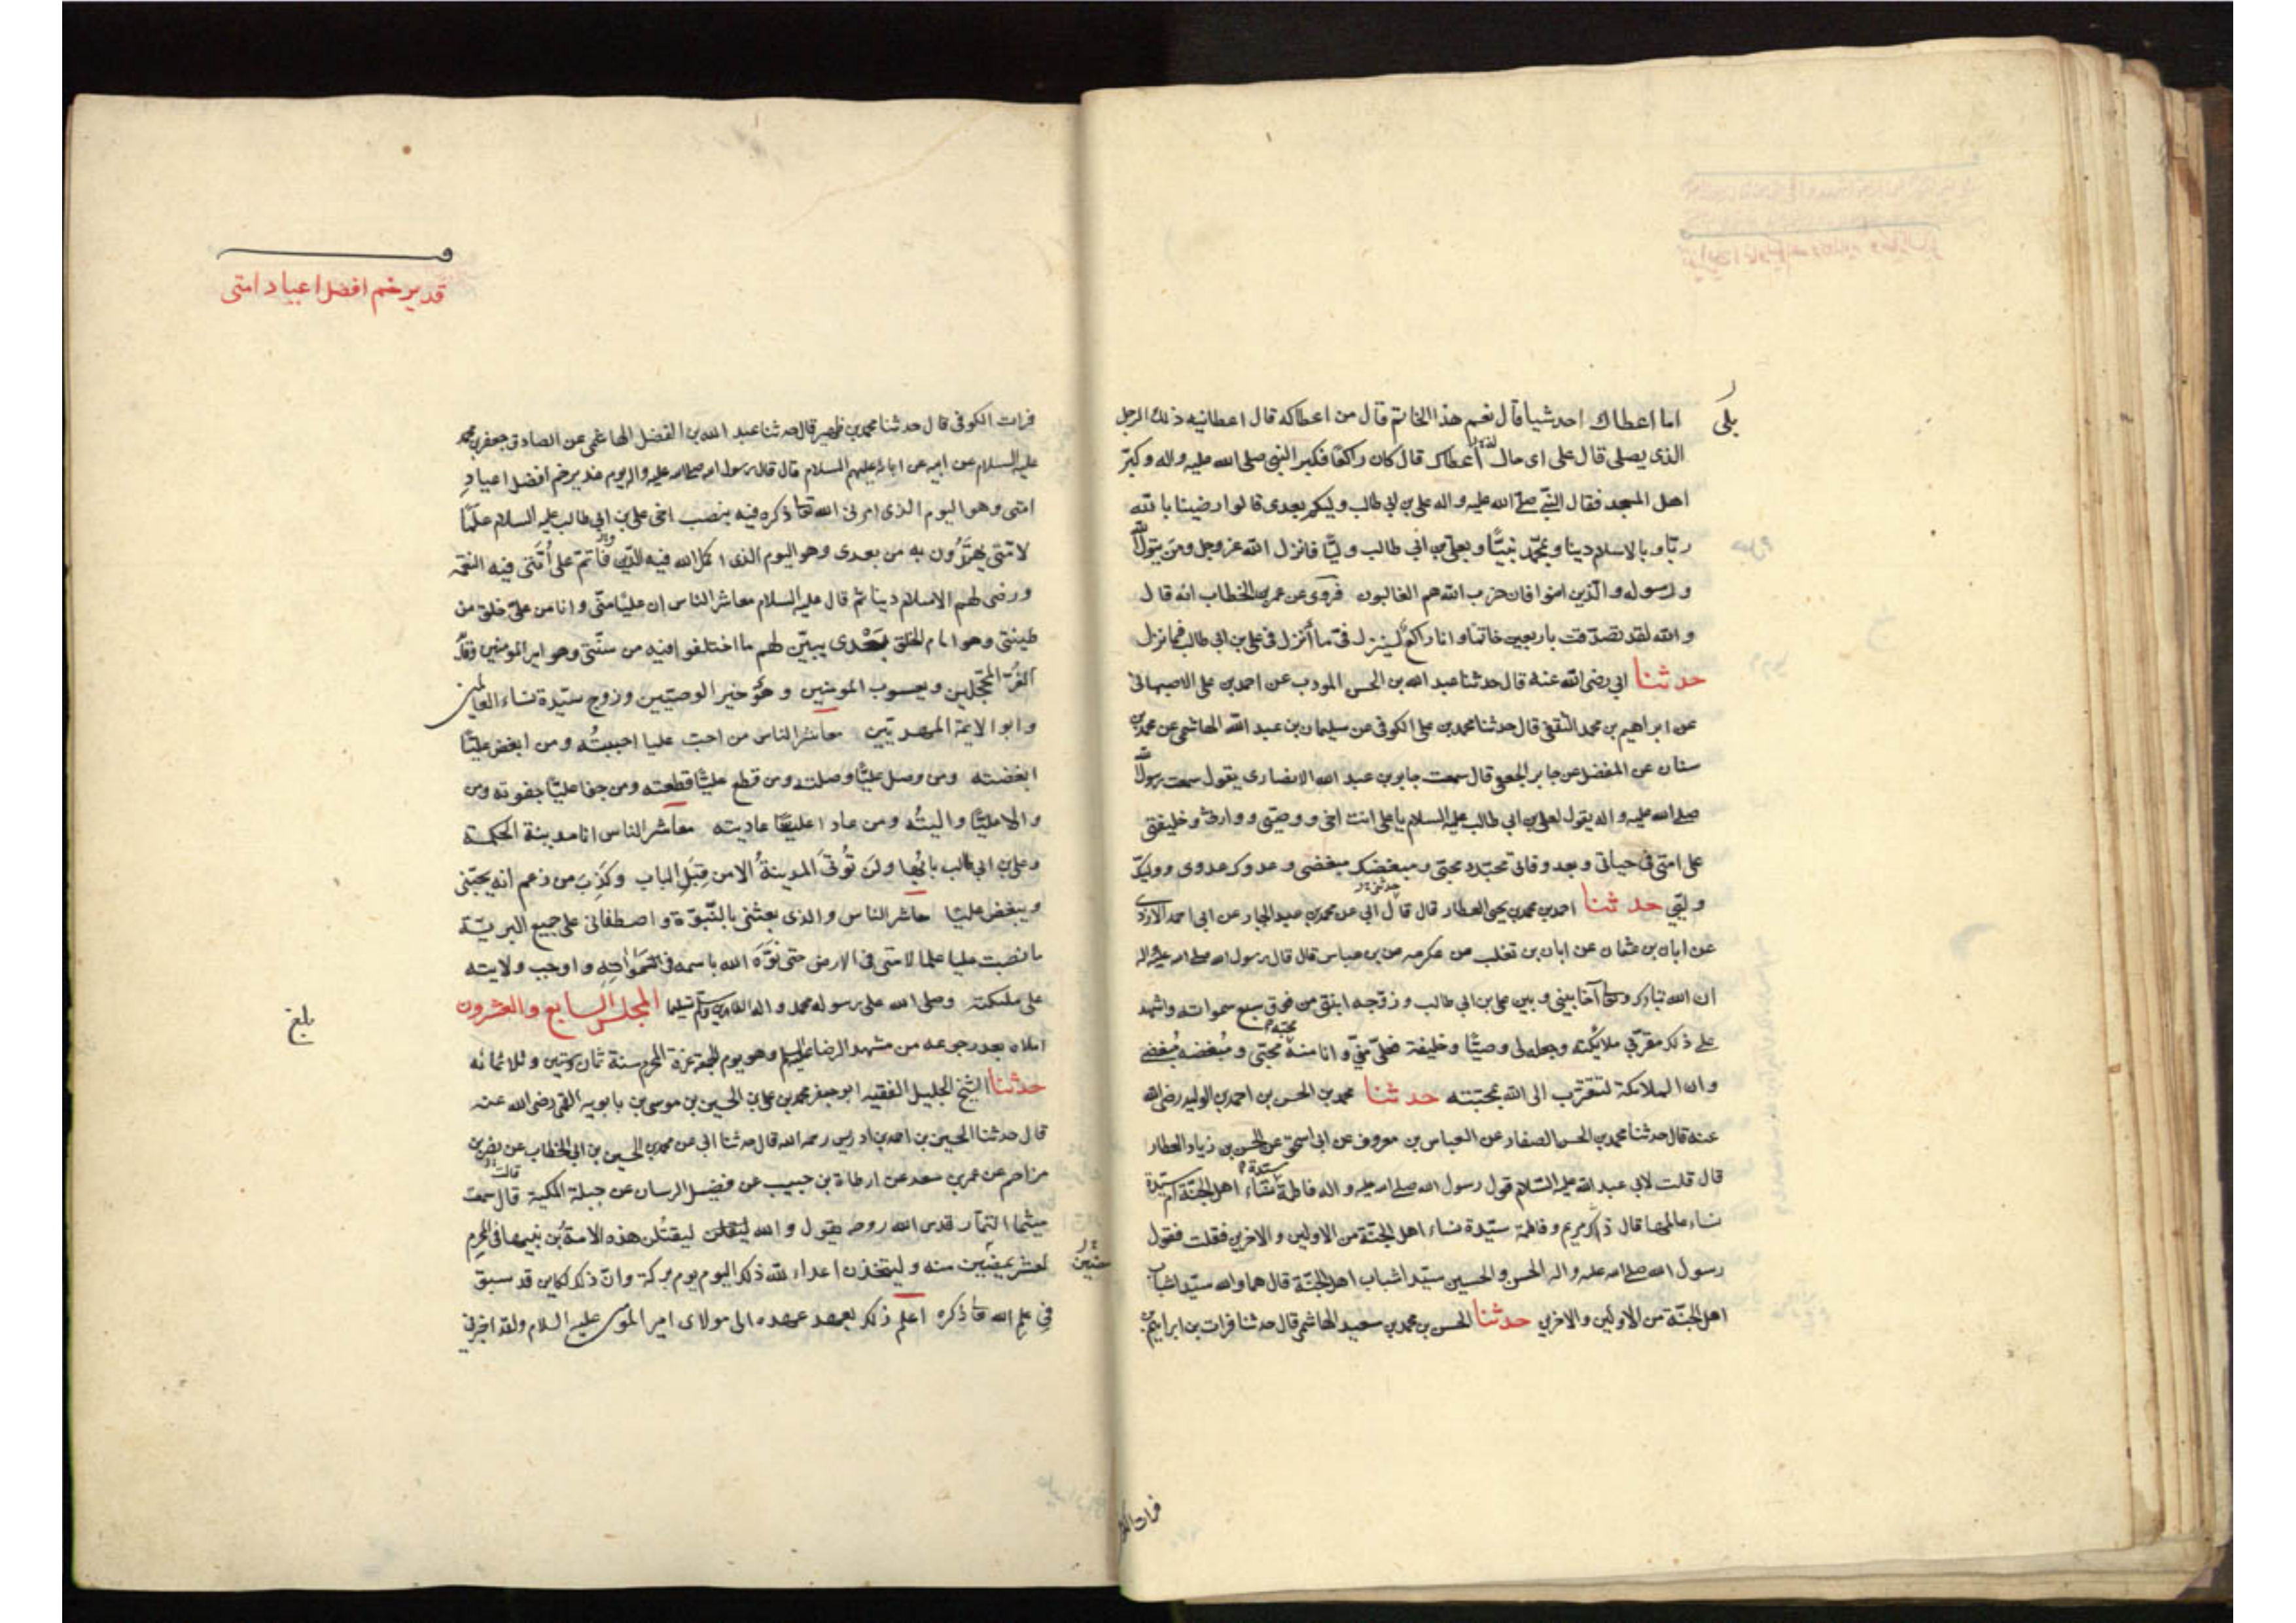 بلى
اما اعطاك احد شيا قال نعم هذا الخاتم قال من اعطاكه قال اعطانيه ذلك الرجل
الذى يصلى قال على اى حال اعطاك قال كان راكعا فكبر النبى صلى الله عليه واله وكبّر
اهل المسجد فقال النبىّ صلى الله عليه واله على بن ابى طالب وليكم بعدى قالوا رضينا بالله
ربّا وبالاسلام دينا وبمحمّد نبيّا وبعلى بن ابى طالب وليّا فانزل الله عز وجل ومن يتولّ الله
ورسوله والّذين امنوا فان حزب الله هم الغالبون فروى عن عمر بن الخطاب انه قال
والله لقد تصدّقت باربعين خاتما وانا راكع لينزل فىّ ما أنزل فى على بن ابى طالب فما نزل
حدثنا ابى رضى الله عنه قال حدثنا عبد الله بن الحسن المودب عن احمد بن على الاصبهانى
عن ابراهيم بن محمد الثقفى قال حدثنا محمد بن على الكوفى عن سليمان بن عبد الله الهاشمى عن محمد بن
سنان عن المفضل عن جابر الجعفى قال سمعت جابر بن عبد الله الانصارى يقول سمعت رسول الله
صلى الله عليه واله يقول لعلى بن ابى طالب عليه السلام يا على انت اخى ووصيّى ووارثى وخليفتى
على امتى فى حياتى وبعد وفاتى محبّك محبّى ومبغضك مبغضى وعدوك عدوى ووليّك
وليّى حدثنا احمد بن محمد بن يحيى العطار قال قال ابى عن محمد بن عبد الجبار عن ابى احمد الازدى
عن ابان بن عثمان عن ابان بن تغلب عن عكرمه عن بن عباس قال قال رسول الله صلى الله عليه واله
ان الله تبارك وتعالى آخا بينى وبين على بن ابى طالب وزوّجه ابنتى من فوق سبع سمواته واشهد
على ذلك مقرّبى ملائكته وجعله لى وصيّا وخليفة فعلىّ منّى وانا منه محبّه محبّى ومُبغضه مُبغضى
وان الملائكة لتتقرّب الى الله بمحبّته حدثنا محمد بن الحسن بن احمد بن الوليد رضى الله
عنه قال حدثنا محمد بن الحسن الصفار عن العباس بن معروف عن ابى اسحق عن الحسن بن زياد العطار
قال قلت لابى عبد الله عليه السّلام قول رسول الله صلى الله عليه واله فاطمة سيّدة نساء اهل الجنّة أم سيّدة
نساء عالمها قال ذاك مريم وفاطمة سيّدة نساء اهل الجنّة من الاولين والاخرين فقلت فقول
رسول الله صلى الله عليه واله الحسن والحسين سيّدا شباب اهل الجنّة قال هما والله سيّدا شباب
اهل الجنّة من الاولين والاخرين حدثنا الحسن بن محمد بن سعيد الهاشمى قال حدثنا فرات بن ابراهيم بن
فرات الكو
قدير خم افضل اعياد امتى
فرات الكوفى قال حدثنا محمد بن ظهير قال حدثنا عبد الله بن الفضل الهاشمى عن الصادق جعفر بن محمد
عليه السلام عن ابيه عن ابائه عليهم السلام قال قال رسول الله صلى الله عليه واله يوم غدير خم افضل اعيادِ
امتى وهو اليوم الذى امرنى الله تعا ذكره فيه بنصب اخى على بن ابى طالب عليه السلام علمًا
لامّتى يهتدُون به من بعدى وهو اليوم الذى اكمل الله فيه الدّين واتمّ على اُمّتى فيه النعمه
ورضى لهم الاسلام دينا ثم قال عليه السلام معاشر الناس إن عليّا منّى وانا من علىّ خلق من
طينتى وهو امام الخلق بَعْدى يبيّن لهم ما اختلفوا فيه من سنّتى وهو امير المومنين وقائد
الغُرّ المحجّلين ويعسوب المومنين وهُوَ خير الوصيّين وزوج سيّدة نساء العالمين
وابو الايمة المهديّين معاشر الناس من احبّ عليا احببتُه ومن ابغض عليّا
ابغضته ومن وصل عليّا وصلته ومن قطع عليّا قطعته ومن جفا عليّا جفوته ومن
والا عليّا واليتُه ومن عادا عليّا عاديته معاشر الناس انا مدينة الحكمة
وعلى بن ابى طالب بابُها ولن تُؤتَى المدينةُ الا من قِبَلِ الباب وكَذَب من زعم انه يحبّنى
ويبغض عليّا معاشر الناس والذى بعثنى بالنّبوّة واصطفانى على جميع البريّة
ما نصبت عليا علما لامتى فى الارض حتى نوّه الله باسمه فى سَمواته واوجب ولايته
على ملئكته وصلى الله على رسوله محمد واله الطاهرين وسلّم تسليما المجلس السابع والعشرون
بلغ
املاه بعد رجوعه من مشهد الرضا عليه السلم وهو يوم الجمعة غرة المحرم سنة ثمان وستين وثلاثمائه
حدثنا الشيخ الجليل الفقيه ابو جعفر محمد بن على بن الحسين بن موسى بن بابويه القمى رضى الله عنه
قال حدثنا الحسين بن احمد بن ادريس رحمه الله قال حدثنا ابى عن محمد بن الحسين بن ابى الخطاب عن نصر بن
مزاحم عن عمر بن سعد عن ارطاة بن حبيب عن فضيل الرسان عن جبلة المكية قال سمعت
قالت
ميثما التمّار قدس الله روحه يقول والله ليقتلن هذه الامةُ بن نبيها فى المحرم
لعشر يمضين منه وليتخذن اعداء الله ذلك اليوم يوم بركة وانّ ذلك لكاين قد سبق
فى علم الله تعا ذكره اعلم ذلك بعهد عهده الى مولاى امير المومنين عليه السلام ولقد اخبرنى